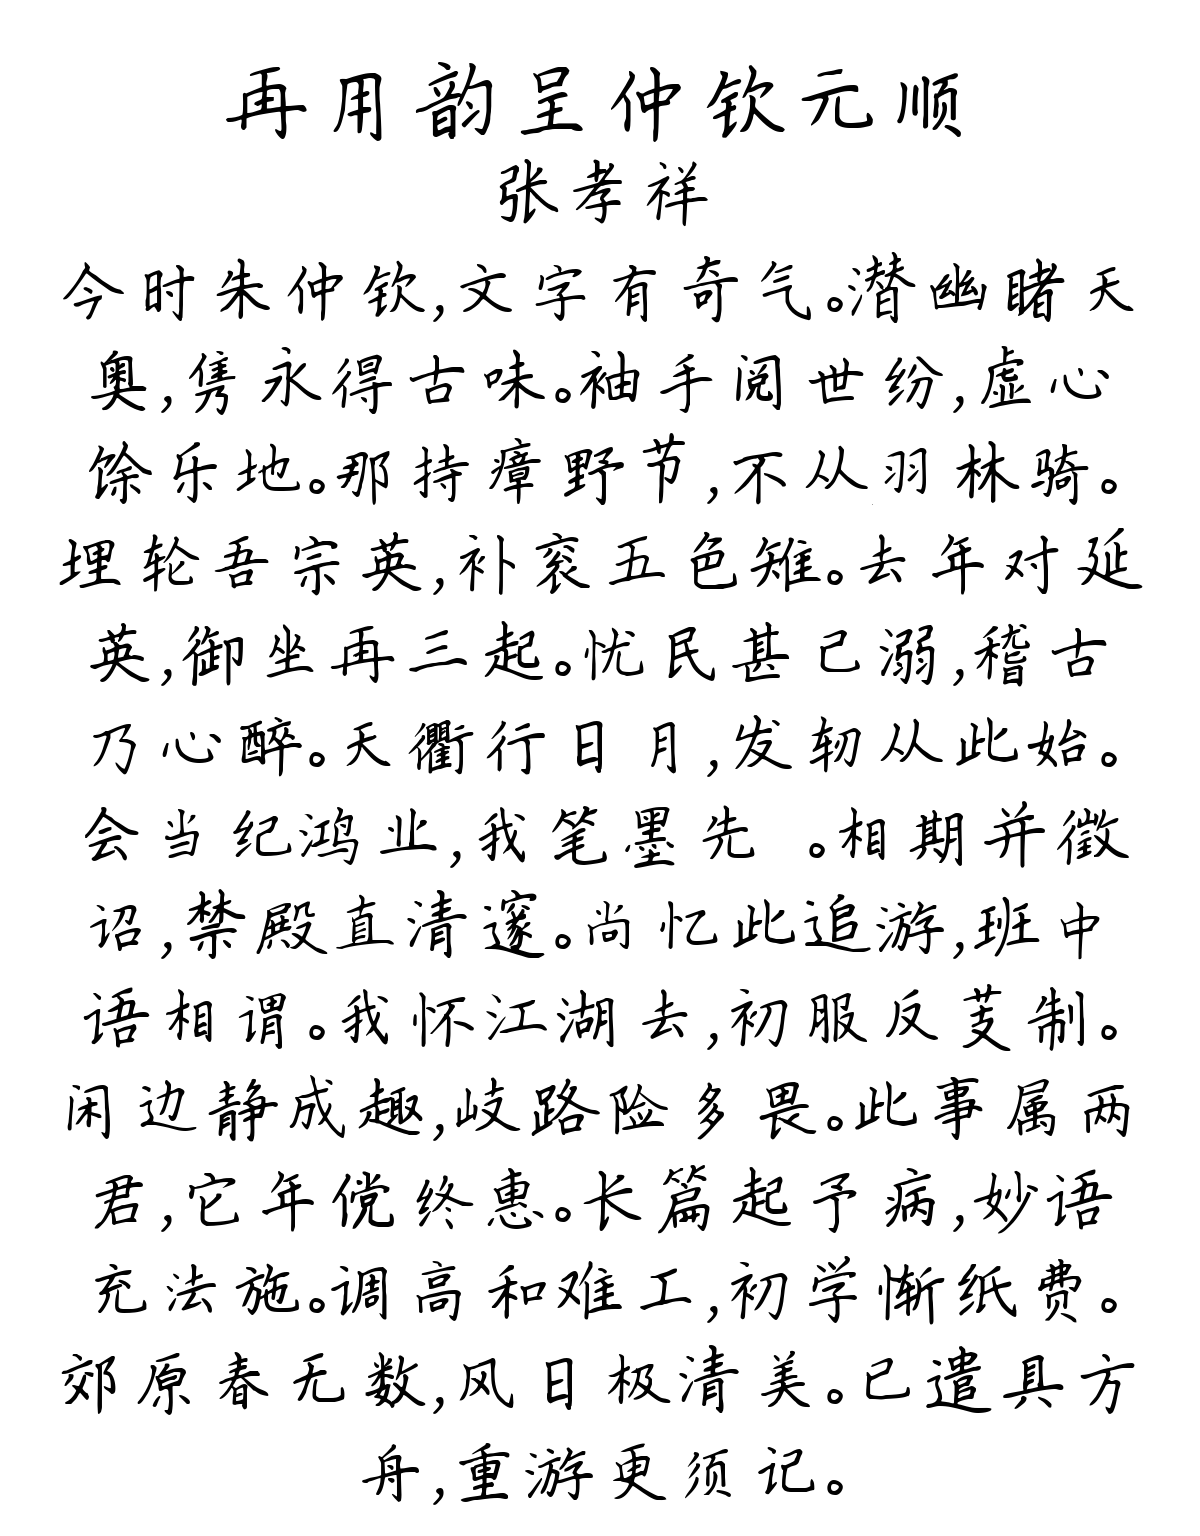 再用韵呈仲钦元顺
张孝祥
今时朱仲钦,文字有奇气。潜幽睹天
奥,隽永得古味。袖手阅世纷,虚心
馀乐地。那持瘴野节,不从羽林骑。
埋轮吾宗英,补衮五色雉。去年对延
英,御坐再三起。忧民甚己溺,稽古
乃心醉。天衢行日月,发轫从此始。
会当纪鸿业,我笔墨先 。相期并徵
诏,禁殿直清邃。尚忆此追游,班中
语相谓。我怀江湖去,初服反芰制。
闲边静成趣,岐路险多畏。此事属两
君,它年傥终惠。长篇起予病,妙语
充法施。调高和难工,初学惭纸费。
郊原春无数,风日极清美。已遣具方
舟,重游更须记。